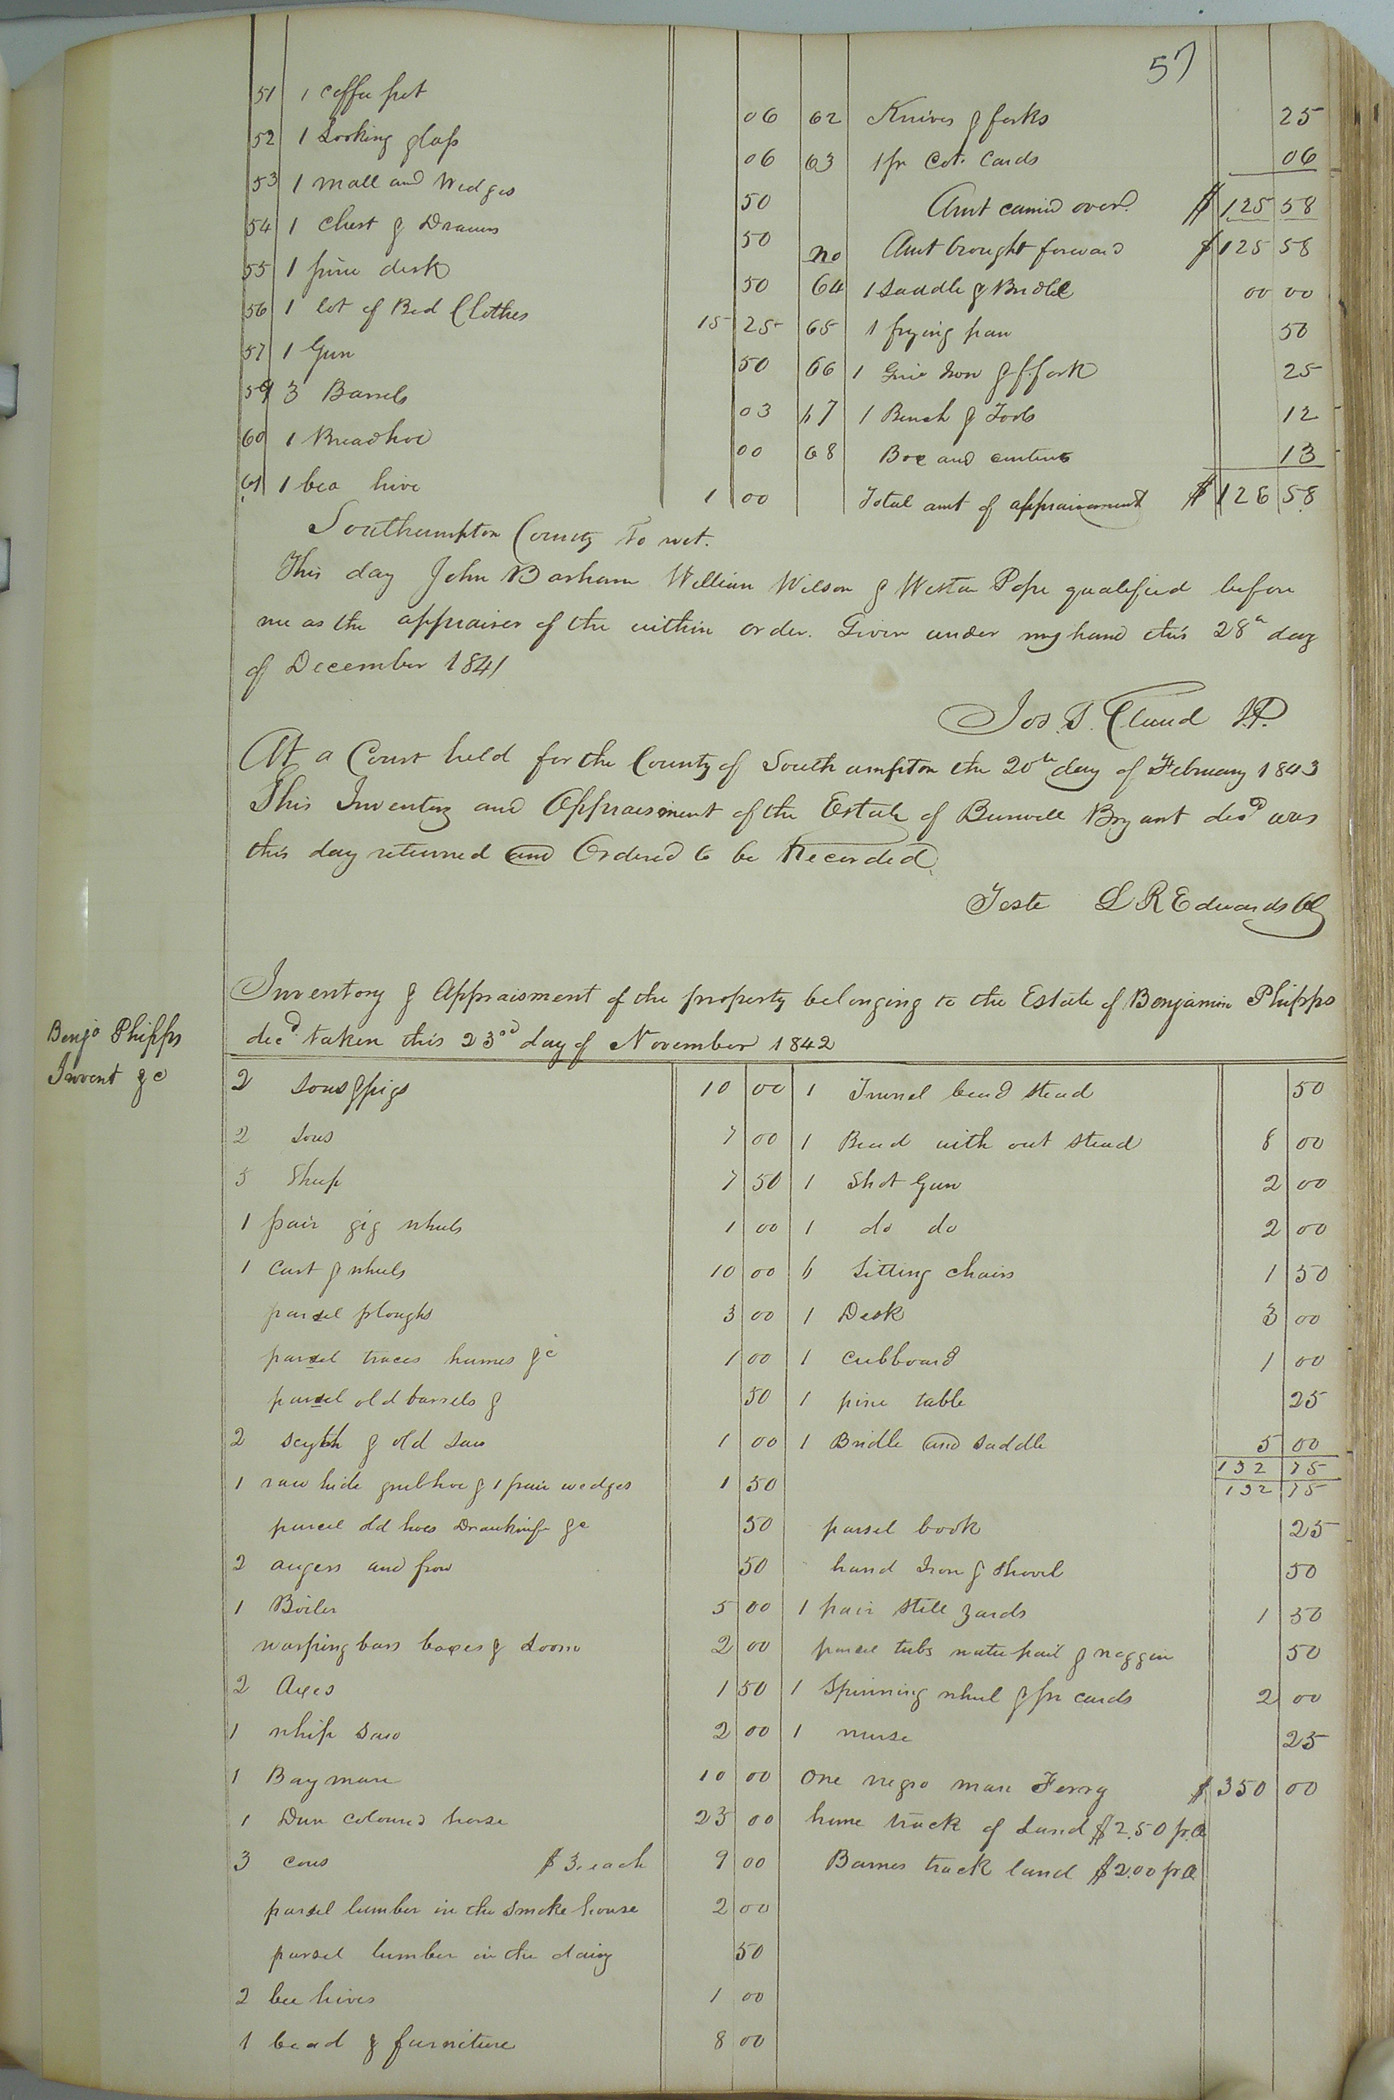 57
51 1 Coffee pot 06
52 1 Looking glass 06
53 1 mall and Wedges 50
54 1 Chest & Drawers 50
55 1 pine desk 50
56 1 lot of Bed Clothes 15 25
57 1 Gun 50
59 3 Barrels 03
60 1 Broadhoe 00
61 1 bea hive 1 00
62 Knives & forks 25
63 1 pr Cot. Cards 06
Amt carried over. $ 125 58
no Amt brought forward $ 125 58
64 1 Saddle & Bridle 00 00
65 1 frying pan 50
66 1 Grid Iron & f. fork 25
67 1 Bench & Tools 12
68 Box and contents 13
Total amt of appraisement $ 126 58
Southampton County To wit.
This day John Barham William Wilson & Weston Pope qualified before
me as the appraiser of the within order. Given under my hand this 28th day
of December 1841
Jos. T. Claud J.P.
At a Court held for the County of Southampton the 20th day of February 1843
This Inventory and Appraisment of the Estate of Burwell Bryant decd was
this day returned and Ordered to be Recorded.
Teste L R Edwards Cl
Benja Phipps
Invent &c
Inventory & Appraisment of the property belonging to the Estate of Benjamin Phipps
decd taken this 23rd day of November 1842
2 sows & pigs 10 00
2 sows 7 00
5 Sheep 7 50
1 pair gig wheels 1 00
1 Cart & wheels 10 00
parsel ploughs 3 00
parsel traces hames &c 1 00
parsel old barrels & 50
2 scyth & old saw 1 00
1 raw hide grubhoe & 1 pair wedges 1 50
parcel old hoes Drawknife &c 50
2 augers and frow 50
1 Boiler 5 00
warping bars boxes & Loom 2 00
2 Axes 1 50
1 whip saw 2 00
1 Bay mare 10 00
1 Dun coloured horse 25 00
3 cows $3. each 9 00
parsel lumber in the smoke house 2 00
parsel lumber in the dairy 50
2 bee hives 1 00
1 bead & furniture 8 00
1 Trunel bead stead 50
1 Bead with out stead 8 00
1 Shot Gun 2 00
1 do do 2 00
6 Sitting chairs 1 50
1 Desk 3 00
1 cubboard 1 00
1 pine table 25
1 Bridle and saddle 5 00
132 75
132 75
parsel book 25
hand Iron & shovel 50
1 pair still zards 1 50
parcel tubs water pail & noggin 50
1 Spinning wheel & pr cards 2 00
1 nurse 25
One negro man Ferry $ 350 00
home track of Land $2.50 pr. A
Barnes track land $2.00 pr A